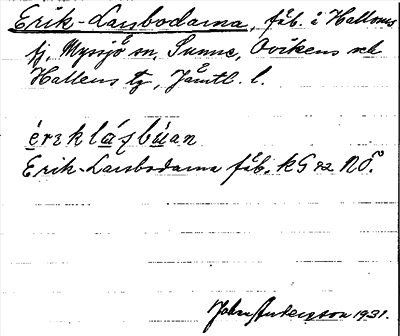 Erik-Larsbodarna, fäb. i Hallens
fj, Myssjö sn, Sunne, Ovikens och
Hallens tg, Jämtl. l.
érɪklázbúan
Erik-Larsbodarna fäb. kG 82 NÖ.
John Anderzson 1931.